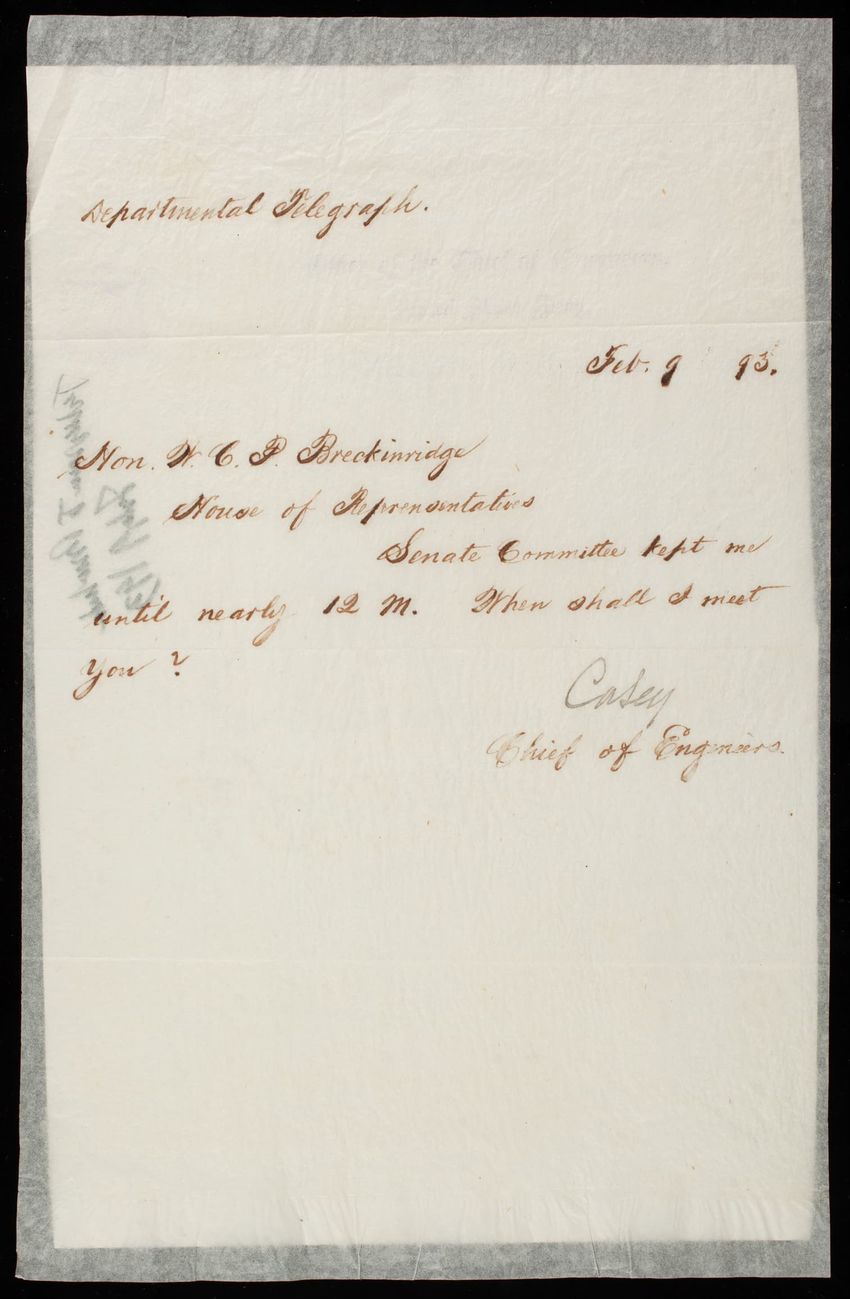 Departmental Telegraph.
Office of the Chief of Engineers.
Feb. 9 93.
Hon. W. C. P. Breckinridge
House of Reprensentatives
Senate Committee kept me
until nearly 12 M. When shall I meet
you?
Casey
Chief of Engineers.